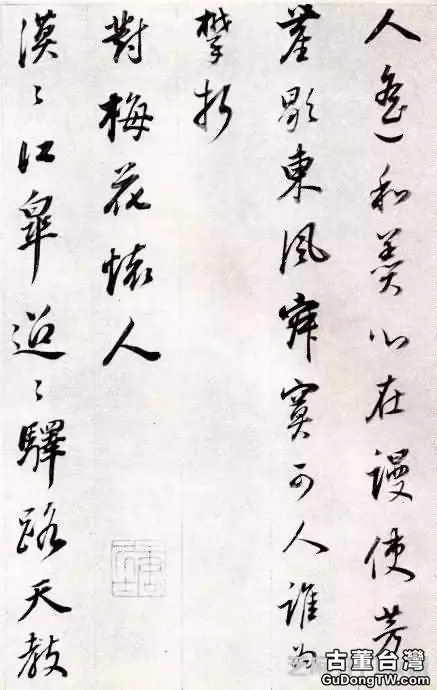 人和羹心在謾使芳
塵歇東風寂寞可人誰為
攀折
對梅花懷人
漠〻江皋迢〻驛路天教
古董台灣
GuDongTW.com